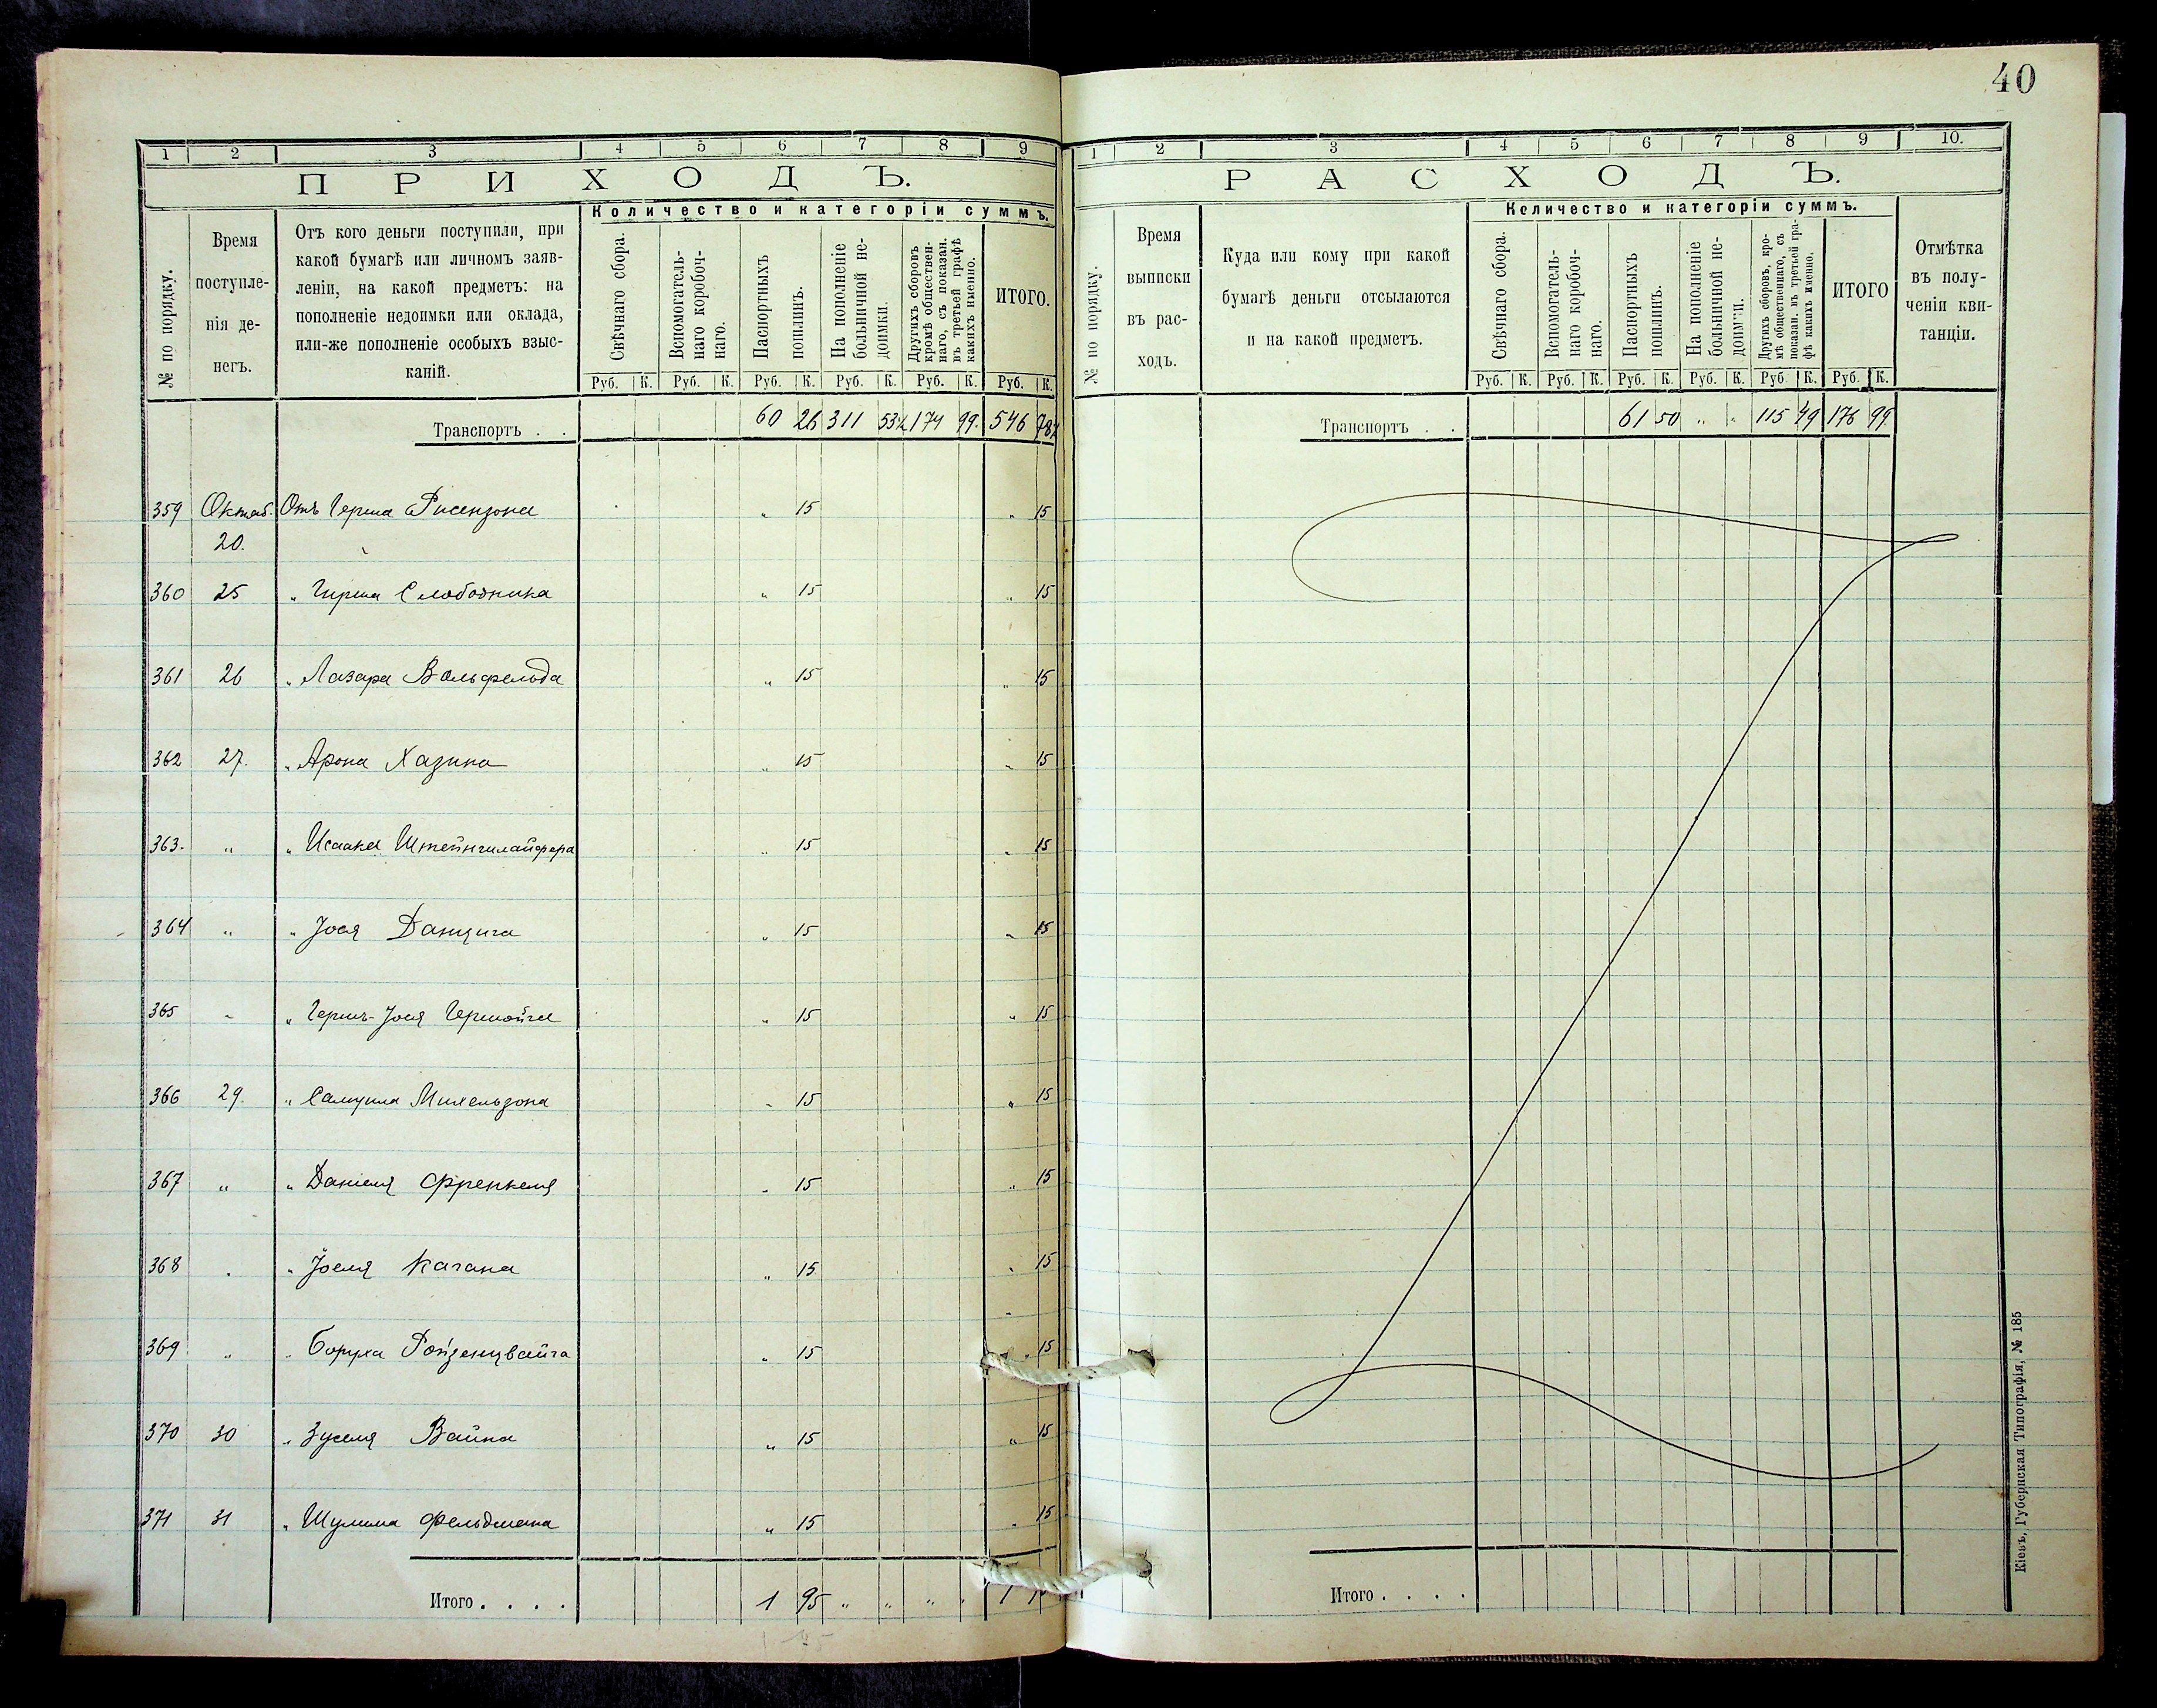 40
1 2 3 4 5 6 7 8 9
ПРИХОДЪ.
№ по порядку.
Время
поступле-
нія де-
негъ.
Отъ кого деньги поступили, при
какой бумагѣ или личномъ заяв-
леніи, на какой предметъ: на
пополненіе недоимки или оклада,
или-же пополненіе особыхъ взыс-
каній.
Количество и категоріи суммъ.
Свѣчнаго сбора.
Вспомогатель-
наго коробоч-
наго.
Паспортныхъ
пошлинъ.
На пополненіе
больничной не-
доимки.
Другихъ сборовъ
кромѣ обществен-
наго, съ показан.
въ третьей графѣ
какихъ именно.
ИТОГО.
Руб. К. Руб. К. Руб. К. Руб. К. Руб. К. Руб. К.
Транспортъ . . 60 26 311 53½ 174 99. 546 78½
359 Октяб. Отъ Герша Рисензона „ 15 „ 15
20.
360 25 „ Гирша Слободника „ 15 „ 15
361 26 „ Лазаря Вольфельда „ 15 „ 15
362 27. „ Арона Хазина „ 15 „ 15
363. „ „ Исаака Штейншлайфера „ 15 „ 15
364 „ „ Іося Данцига „ 15 „ 15
365 „ „ Гершъ-Іося „ 15 „ 15
366 29. „ Самуила Михельзона „ 15 „ 15
367 „ „ Даніеля Френкеля „ 15 „ 15
368 „ „ Іоеля Кагана „ 15 „ 15
369 „ „ Боруха Ройзенцвайга „ 15 „ 15
370 30 „ Зуселя Вайна „ 15 „ 15
371 31 „ Шулима Фельдмана „ 15 „ 15
Итого . . . . 1 95 „ „ „ „ 1
1 95
1 2 3 4 5 6 7 8 9 10.
РАСХОДЪ.
№ по порядку.
Время
выписки
въ рас-
ходъ.
Куда или кому при какой
бумагѣ деньги отсылаются
и на какой предметъ.
Количество и категоріи суммъ.
Свѣчнаго сбора.
Вспомогатель-
наго коробоч-
наго.
Паспортныхъ
пошлинъ.
На пополненіе
больничной не-
доимки.
Другихъ сборовъ, кро-
мѣ общественнаго, съ
показан. въ третьей гра-
фѣ какихъ именно.
ИТОГО
Отмѣтка
въ полу-
ченіи кви-
танціи.
Руб. К. Руб. К. Руб. К. Руб. К. Руб К. Руб. К.
Транспортъ . . 61 50 „ „ 115 49 176 99.
Итого . . . .
Кіевъ, Губернская Типографія, № 185